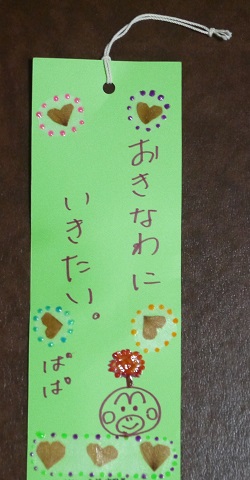 おきなわに
いきたい。
ぱぱ